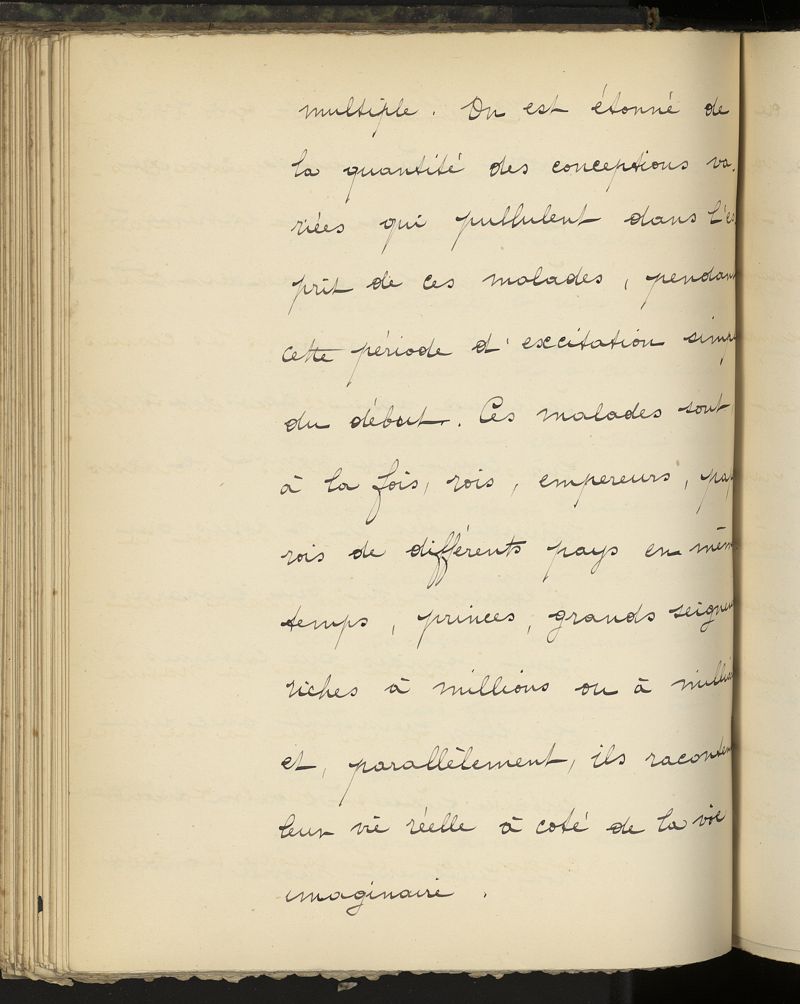 multiple. On est étonné de
la quantité des conceptions va-
riées qui pullulent dans l'es
prit de ces malades, pendant
cette période d'excitation simple
du début. Ces malades sont,
à la fois, rois, empereurs, pap
rois de différents pays en même
temps, princes, grands seigneu
riches à millions ou à milli
et, parallèlement, ils racontent
leur vie réelle à coté de la vie
imaginaire.